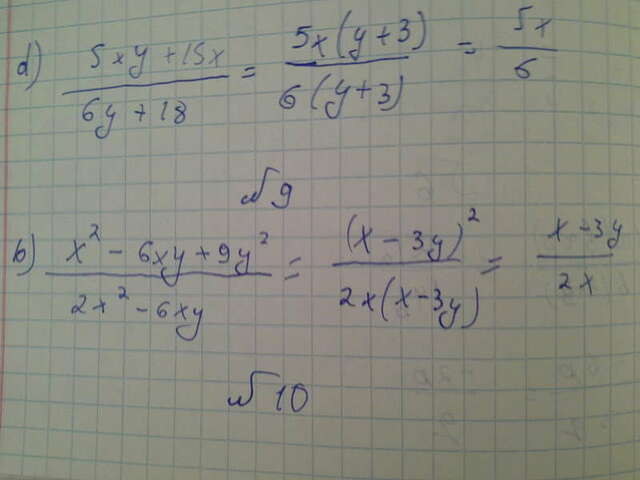 d) (5xy + 15x)/(6y + 18) = 5x(y + 3)/6(y + 3) = 5x/6
№9
b) (x² - 6xy + 9y²)/(2x² - 6xy) = (x - 3y)²/2x(x - 3y) = (x - 3y)/2x
№10